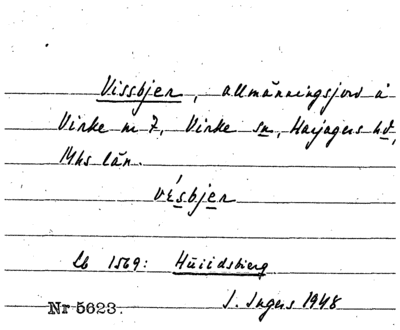 Vissbjer, allmänningsjord å
Virke nr 7, Virke sn, Harjagers hd,
Mhs län.
vésbjer
Lb 1569: Hüiidsbierg
Nr 5623. I. Ingers 1948